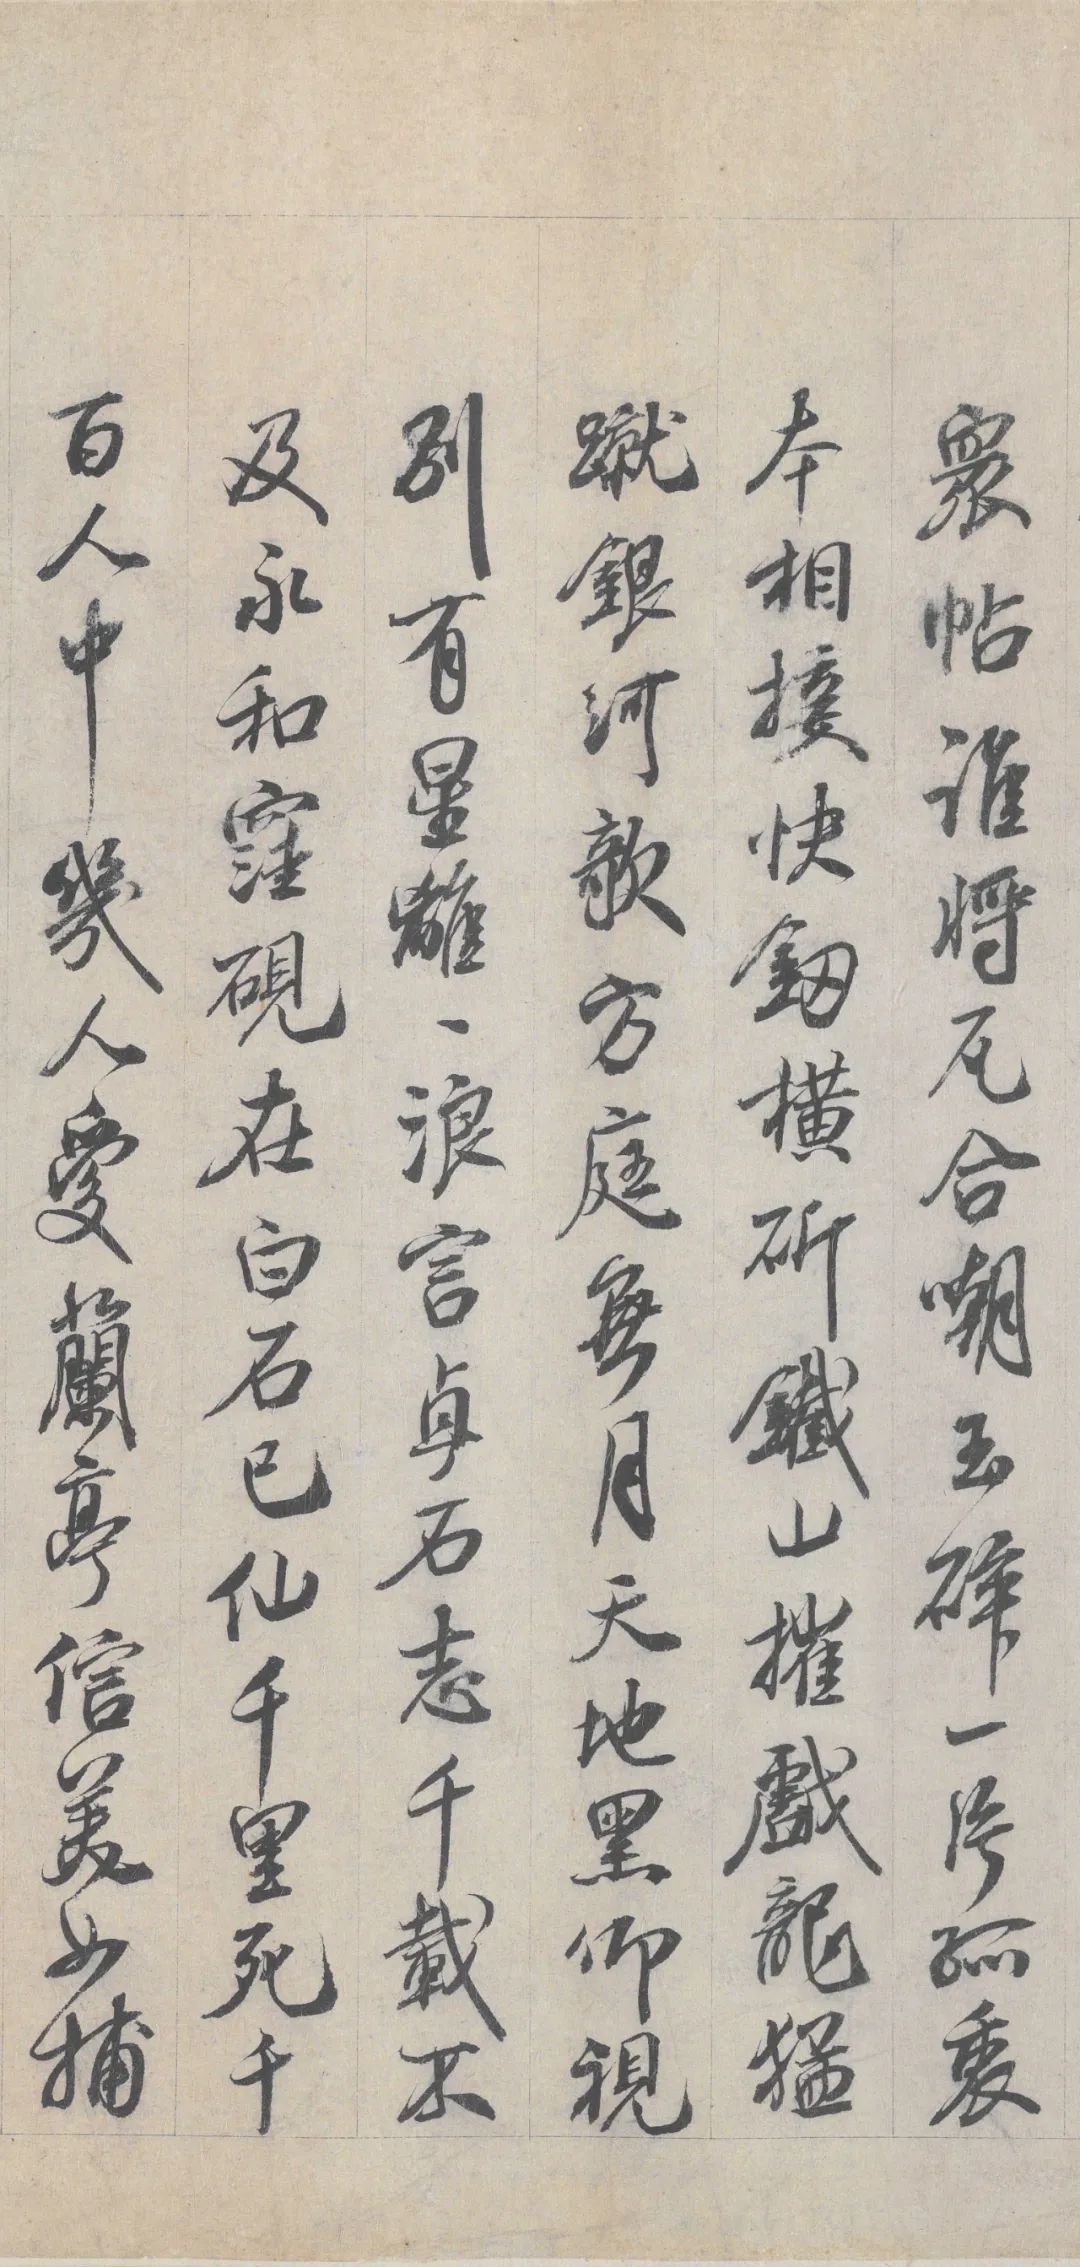 衆帖誰將瓦合嘲玉碎一片孤裹
本相接快劒橫斫鐵山摧戲龍猛
蹴銀河欹方庭無月天地黑仰視
别有星離〻浪言貞石志千載不
及永和窪硯在白石已仙千里死千
百人中幾人愛蘭亭信美如捕